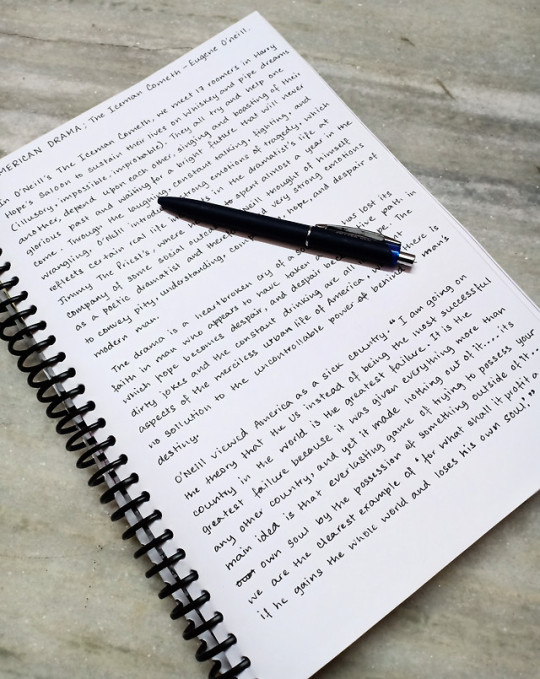 MERICAN DRAMA: The Iceman Cometh - Eugene O'neill.
In O'Neill's The Iceman Cometh, we meet 17 roomers in Harry
Hope's Saloon to sustain their lives on whiskey and pipe dreams
(illusory, impossible, improbable). They all try and help one
another, depend upon each other, singing and boasting of their
glorious past and waiting for a bright future that will never
come. Through the laughing, constant talking, fighting, and
wrangling, O'Neill introduces strong emotions of tragedy, which
reflects certain real life in the dramatist's life at
Jimmy The Priest's, where spent almost a year in the
company of some social outc O'Neill thought of himself
as a poetic dramatist and there very strong emotions
to convey pity, understanding, hope and despair of
modern man.
The drama is a heartbroken cry of a has lost its
faith in man who appears to have taken path. in
which hope becomes despair, and despair bec The
dirty jokes and the constant drinking are all
aspects of the merciless urban life of America, there is
no solution to the uncontrollable power of behind man's
destiny.
O'Neill viewed America as a sick country. "I am going on
the theory that the US instead of being the most successful
country in the world is the greatest failure. It is the
greatest failure because it was given everything more than
any other country. and yet it made nothing out of it.... its
main idea is that everlasting game of trying to possess your
own soul by the possession of something outside of it...
we are the clearest example of 'for what shall it profit a
if he gains the whole world and loses his own soul.'"